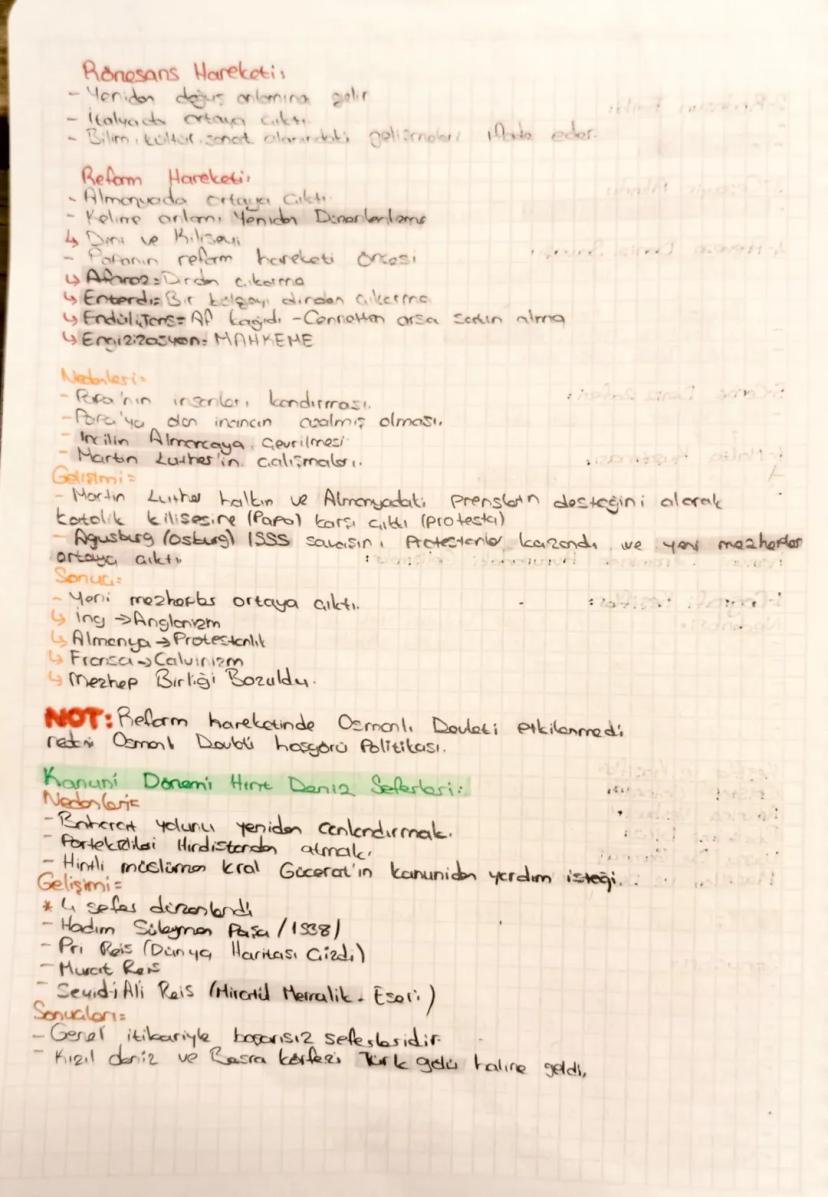 Rönesans Hareketi:
- Yeniden doğuş anlamına gelir
- İtalyada ortaya çıktı.
- Bilim, kültür, sanat alanındaki gelişmeleri ifade eder.
Reform Hareketi:
- Almanyada ortaya çıktı.
- Kelime anlamı Yeniden Düzenlenleme
↳ Dini ve Kiliseyi
- Papanın reform hareketi öncesi
↳ Aforoz = Dinden çıkarma
↳ Enterdi = Bir bölgeyi dinden çıkarma
↳ Endülüjans = Af kağıdı - Cennetten arsa satın alma
↳ Engizizasyon = MAHKEME
Nedenleri =
- Papa'nın insanları kandırması.
- Papa'ya olan inancın azalmış olması.
- İncilin Almancaya çevrilmesi
- Martin Luther'in çalışmaları.
Gelişimi =
- Martin Luther halkın ve Almanyadaki prenslerin desteğini alarak
katolik kilisesine (Papa) karşı çıktı (protesta)
- Agusburg (Osburg) 1555 savaşını Protestanlar kazandı ve yeni mezhepler
ortaya çıktı.
Sonucu =
- Yeni mezhepler ortaya çıktı.
↳ İng → Anglanizm
↳ Almanya → Protestanlık
↳ Fransa → Calvinizm
↳ Mezhep Birliği Bozuldu.
NOT: Reform hareketinde Osmanlı Devleti etkilenmedi
nedeni Osmanlı Devleti hoşgörü Politikası.
Kanuni Dönemi Hint Deniz Seferleri:
Nedenleri =
- Baharat yolunu yeniden canlendırmak.
- Portekizlileri Hindistandan atmak.
- Hintli müslüman kral Gücerat'ın kanuniden yardım isteği.
Gelişimi =
* 4 sefer düzenlendi
- Hadım Süleyman Paşa / 1538 /
- Pri Reis (Dünya Haritası Çizdi)
- Murat Reis
- Seyid-i Ali Reis (Miratül Memalik - Eseri)
Sonuçları =
- Genel itibariyle başarısız seferleridir
- Kızıl deniz ve Basra körfezi Türk gölü haline geldi.